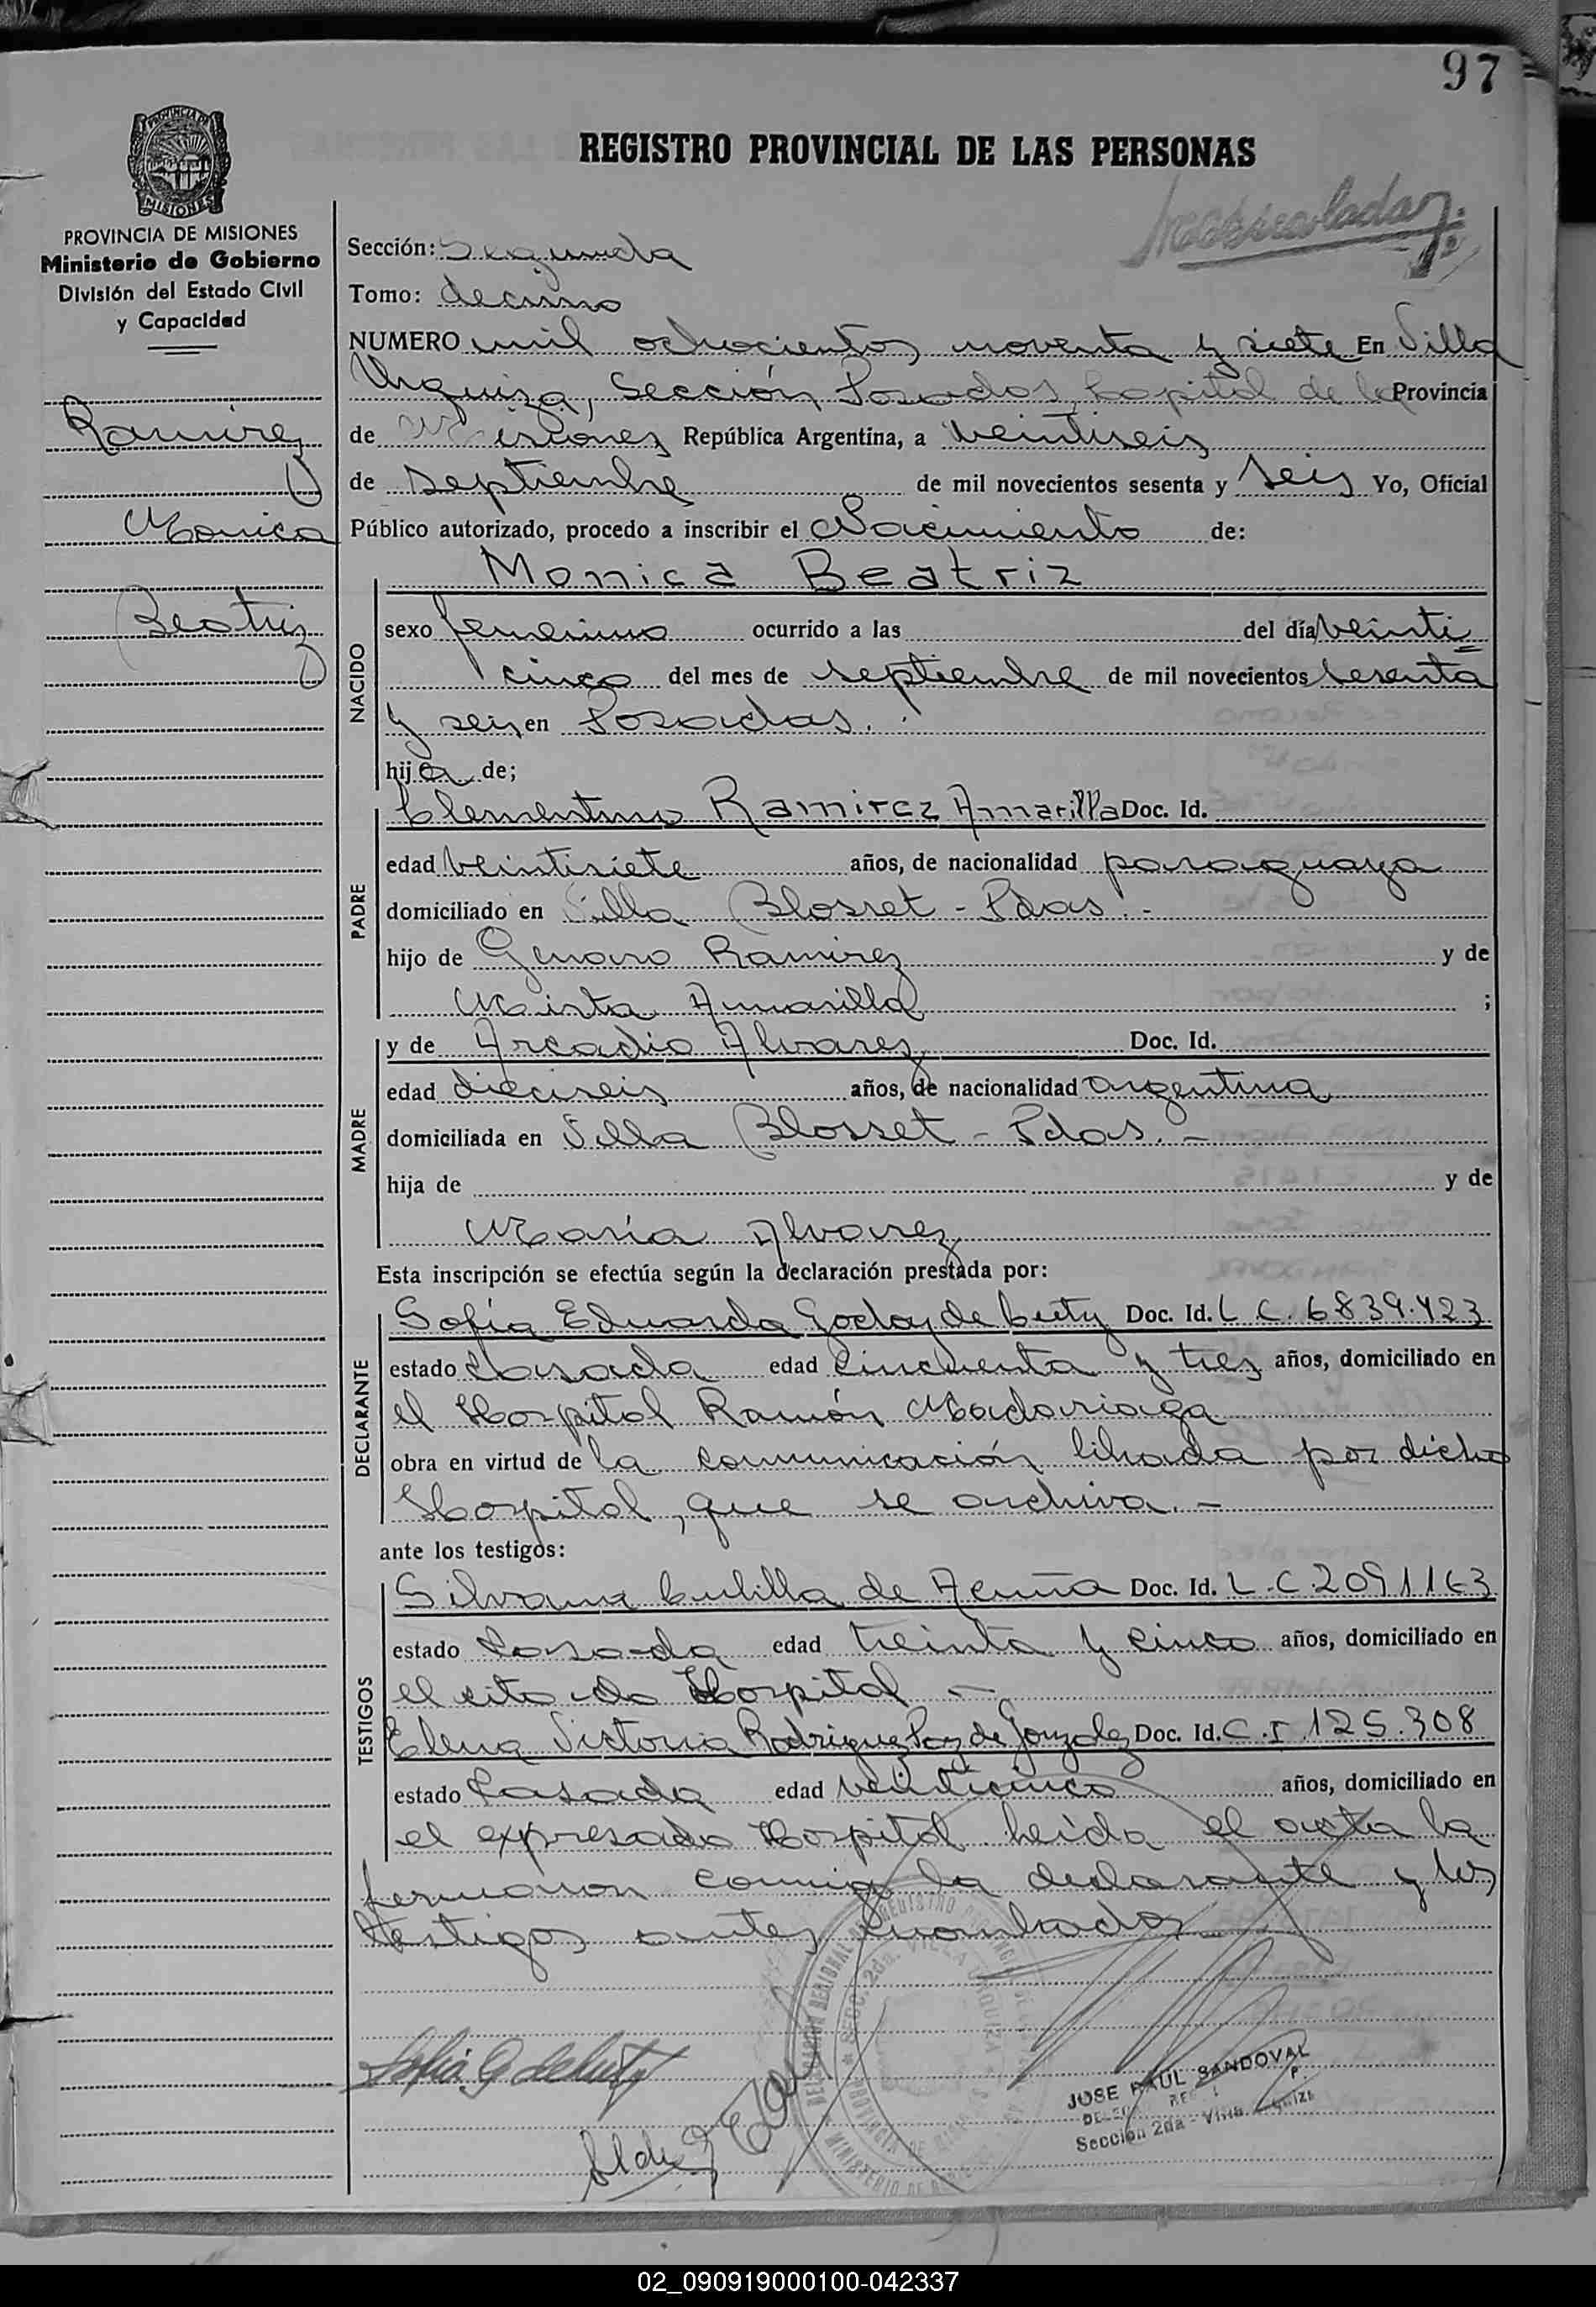 97
REGISTRO PROVINCIAL DE LAS PERSONAS
PROVINCIA DE MISIONES
Ministerio de Gobierno
División del Estado Civil
y Capacidad
Ramirez
Monica
Beatriz
Sección: Segunda
Tomo: decimo
NUMERO mil ochocientos noventa y siete En Villa
Urquiza, Sección Posadas, Capital de la Provincia
de Misiones República Argentina, a veintiseis
de septiembre de mil novecientos sesenta y seis Yo, Oficial
Público autorizado, procedo a inscribir el Nacimiento de:
NACIDO
Monica Beatriz
sexo femenino ocurrido a las del día veinti
cinco del mes de septiembre de mil novecientos sesenta
y seis en Posadas.
hija de;
PADRE
Clementino Ramirez Amarilla Doc. Id.
edad veintisiete años, de nacionalidad paraguaya
domiciliado en Villa Blosset - Pdas. -
hijo de Genaro Ramirez y de
Mirta Amarilla ;
MADRE
y de Arcadia Alvarez Doc. Id.
edad dieciseis años, de nacionalidad argentina
domiciliada en Villa Blosset - Pdas. -
hija de y de
María Alvarez
Esta inscripción se efectúa según la declaración prestada por:
DECLARANTE
Sofia Eduarda Godoy de Doc. Id. L C. 6839.423
estado Casada edad cincuenta y tres años, domiciliado en
el Hospital Ramón Madariaga
obra en virtud de la comunicación librada por dicho
Hospital, que se archiva. -
ante los testigos:
TESTIGOS
Silvana de Acuña Doc. Id. L.C. 2091163
estado Casada edad treinta y cinco años, domiciliado en
el citado Hospital -
Elena Victoria Rodriguez Paz de Gonzalez Doc. Id. C.I. 125.308
estado Casada edad veinticinco años, domiciliado en
el expresado Hospital. Leída el acta la
firmaron conmigo la declarante y los
testigos antes nombrados
JOSE RAUL SANDOVAL
Sección 2da - Villa Urquiza
02_090919000100-042337